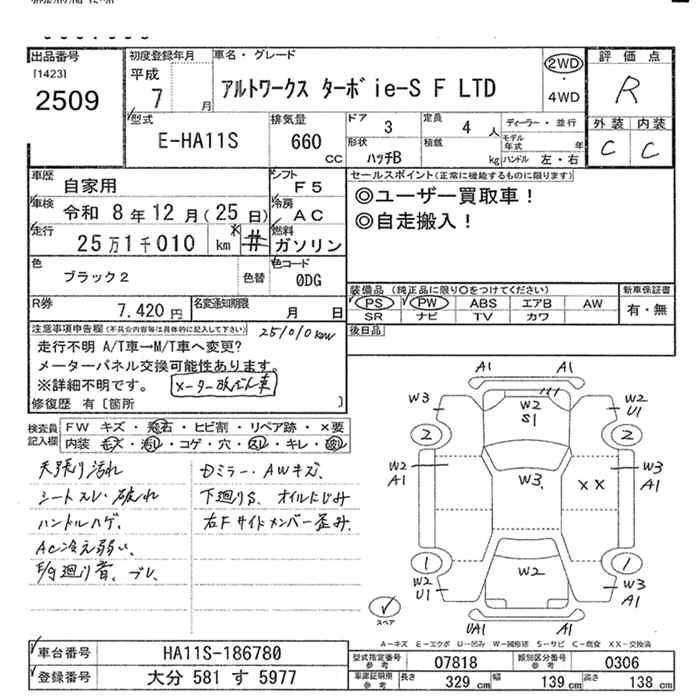 出品番号
[1423]
2509
初度登録年月
平成
7 月
車名・グレード
アルトワークス ターボie-S F LTD
2WD
・
4WD
評価点
R
型式
E-HA11S
排気量
660
CC
ドア 3
定員 4 人
形状 ハッチB
積載 kg
ディーラー・並行
モデル年式 年
ハンドル 左・右
外装 内装
C C
車歴 自家用
シフト F5
車検 令和 8年12月(25日)
冷房 AC
走行 25万1千010 km * #
燃料 ガソリン
色 ブラック2 色替
色コード 0DG
R券 7,420円
名変通知期限 月 日
セールスポイント(正常に機能するものに限ります)
◎ユーザー買取車!
◎自走搬入!
装備品(純正品に限り○をつけてください)
PS PW ABS エアB AW
SR ナビ TV カワ
新車保証書
有・無
後日品
注意事項申告欄(不具合内容等は具体的に記入して下さい)
251010km
走行不明 A/T車→M/T車へ変更?
メーターパネル交換可能性あります。
※詳細不明です。 メーター改ざん車
修復歴 有〔箇所 〕
検査員記入欄
FW キズ・飛石・ヒビ割・リペア跡・×要
内装 キズ・汚れ・コゲ・穴・スレ・キレ・破れ
天張り汚れ
シートスレ・破れ
ハンドルハゲ、
AC冷え弱い、
E/g廻り音、ブレ、
Dミラー・AWキズ、
下廻りS、オイルにじみ
右Fサイドメンバー歪み、
A1
W3
W2
S1
A1
W2
U1
2
2
W2
A1
W3
XX
W3
A1
1
1
W2
U1
W2
W3
A1
スペア
UA1
A1
A-キズ E-エクボ U-凹み W-補修跡 S-サビ C-腐食 XX-交換済
車台番号 HA11S-186780
登録番号 大分 581 す 5977
型式指定番号 参考 07818
類別区分番号 参考 0306
車庫証明用 参考 長さ 329 cm 幅 139 cm 高さ 138 cm